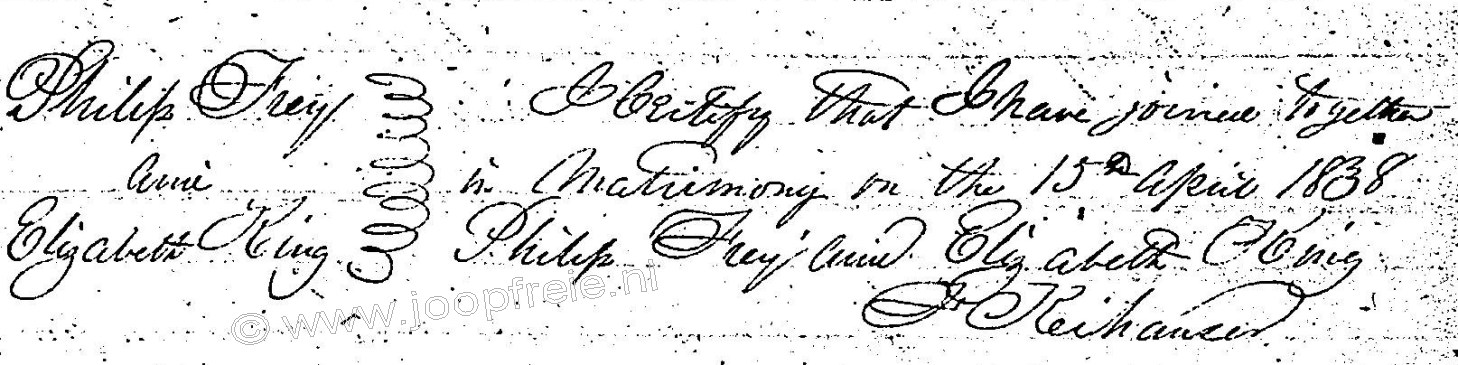 Philip Frey I Certify that I have joined together
and in Matrimony on the 15th April 1838
Elizabeth King Philip Frey and Elizabeth King
© www.joopfreie.nl